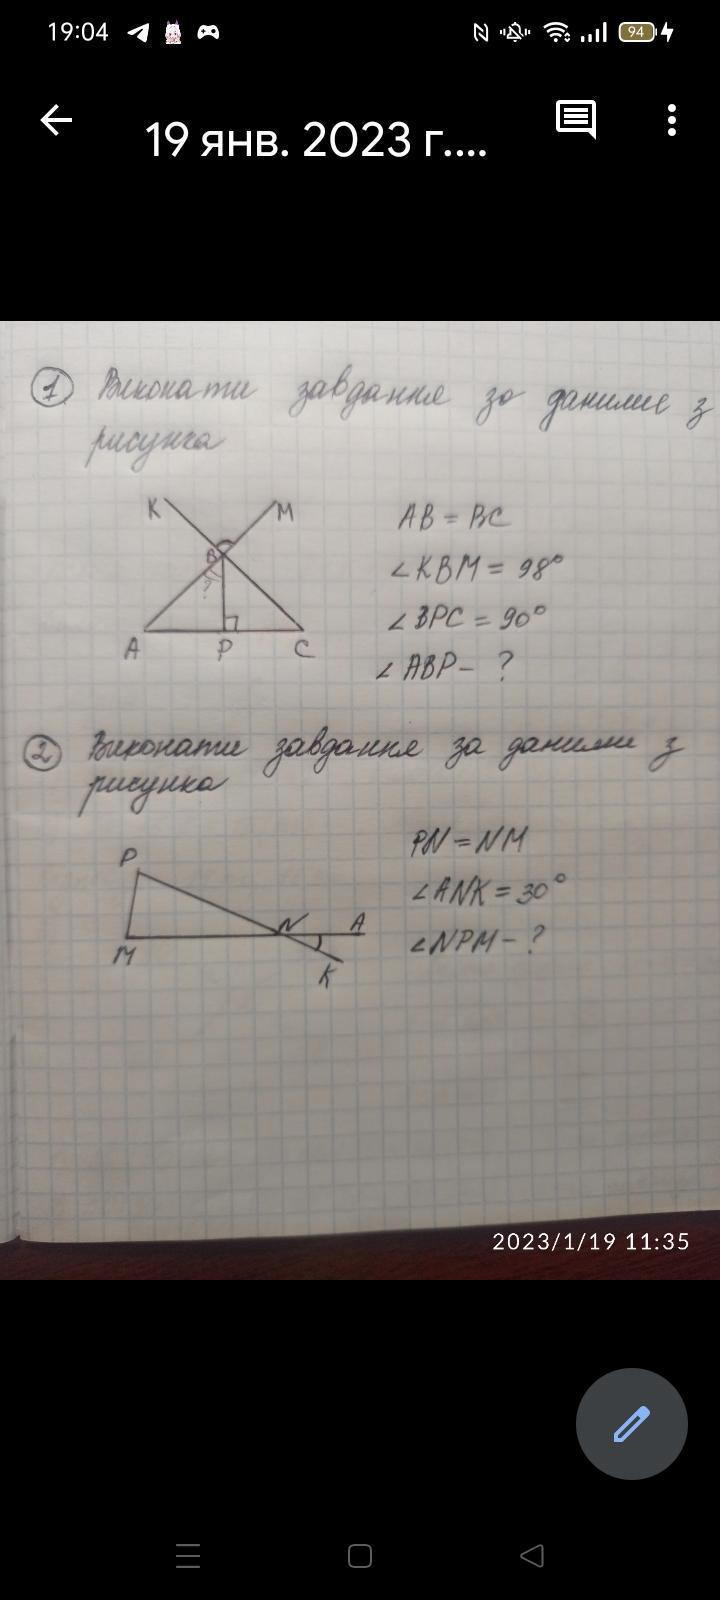 19:04 94
19 янв. 2023 г....
1 Виконати завдання за даними з
рисунка
K M
B
?
A P C
AB = BC
∠KBM = 98°
∠BPC = 90°
∠ABP - ?
2 Виконати завдання за даними з
рисунка
P
N A
M
K
PN = NM
∠ANK = 30°
∠NPM - ?
2023/1/19 11:35